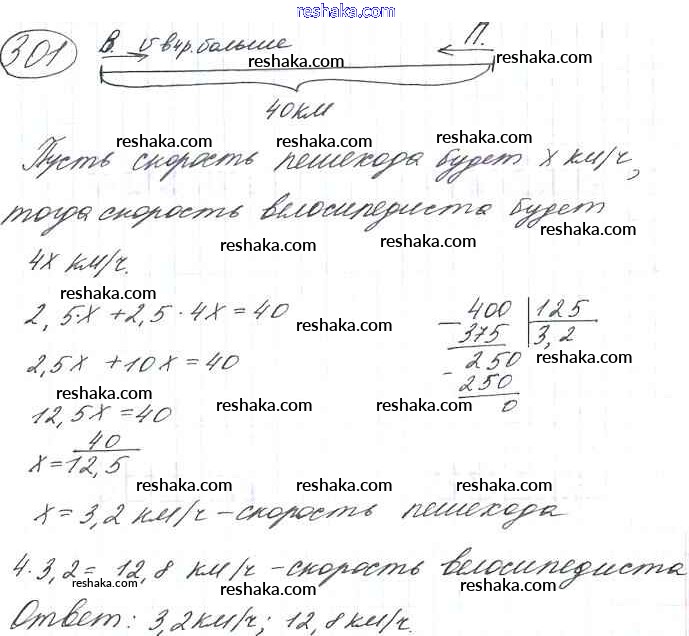 www.reshaka.com
301 В. v в 4 р. больше П.
reshaka.com reshaka.com
40 км
reshaka.com reshaka.com reshaka.com
Пусть скорость пешехода будет x км/ч,
тогда скорость велосипедиста будет
reshaka.com reshaka.com
4x км/ч.
reshaka.com
2,5·x + 2,5·4x = 40
reshaka.com
400 | 125
- 375 3,2
2,5x + 10x = 40
- 250
reshaka.com
250
reshaka.com reshaka.com reshaka.com
0
12,5x = 40
x = 40/12,5
reshaka.com reshaka.com
x = 3,2 км/ч - скорость пешехода
reshaka.com reshaka.com
4·3,2 = 12,8 км/ч - скорость велосипедиста
reshaka.com reshaka.com reshaka.com
Ответ: 3,2 км/ч; 12,8 км/ч.